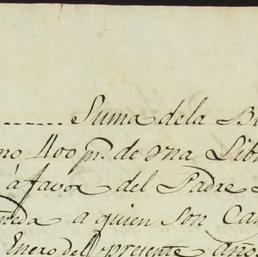 Suma dela B
no 400 p.s de vna Lib
á favor del Padre
a quien son Ca
Enero del presente año